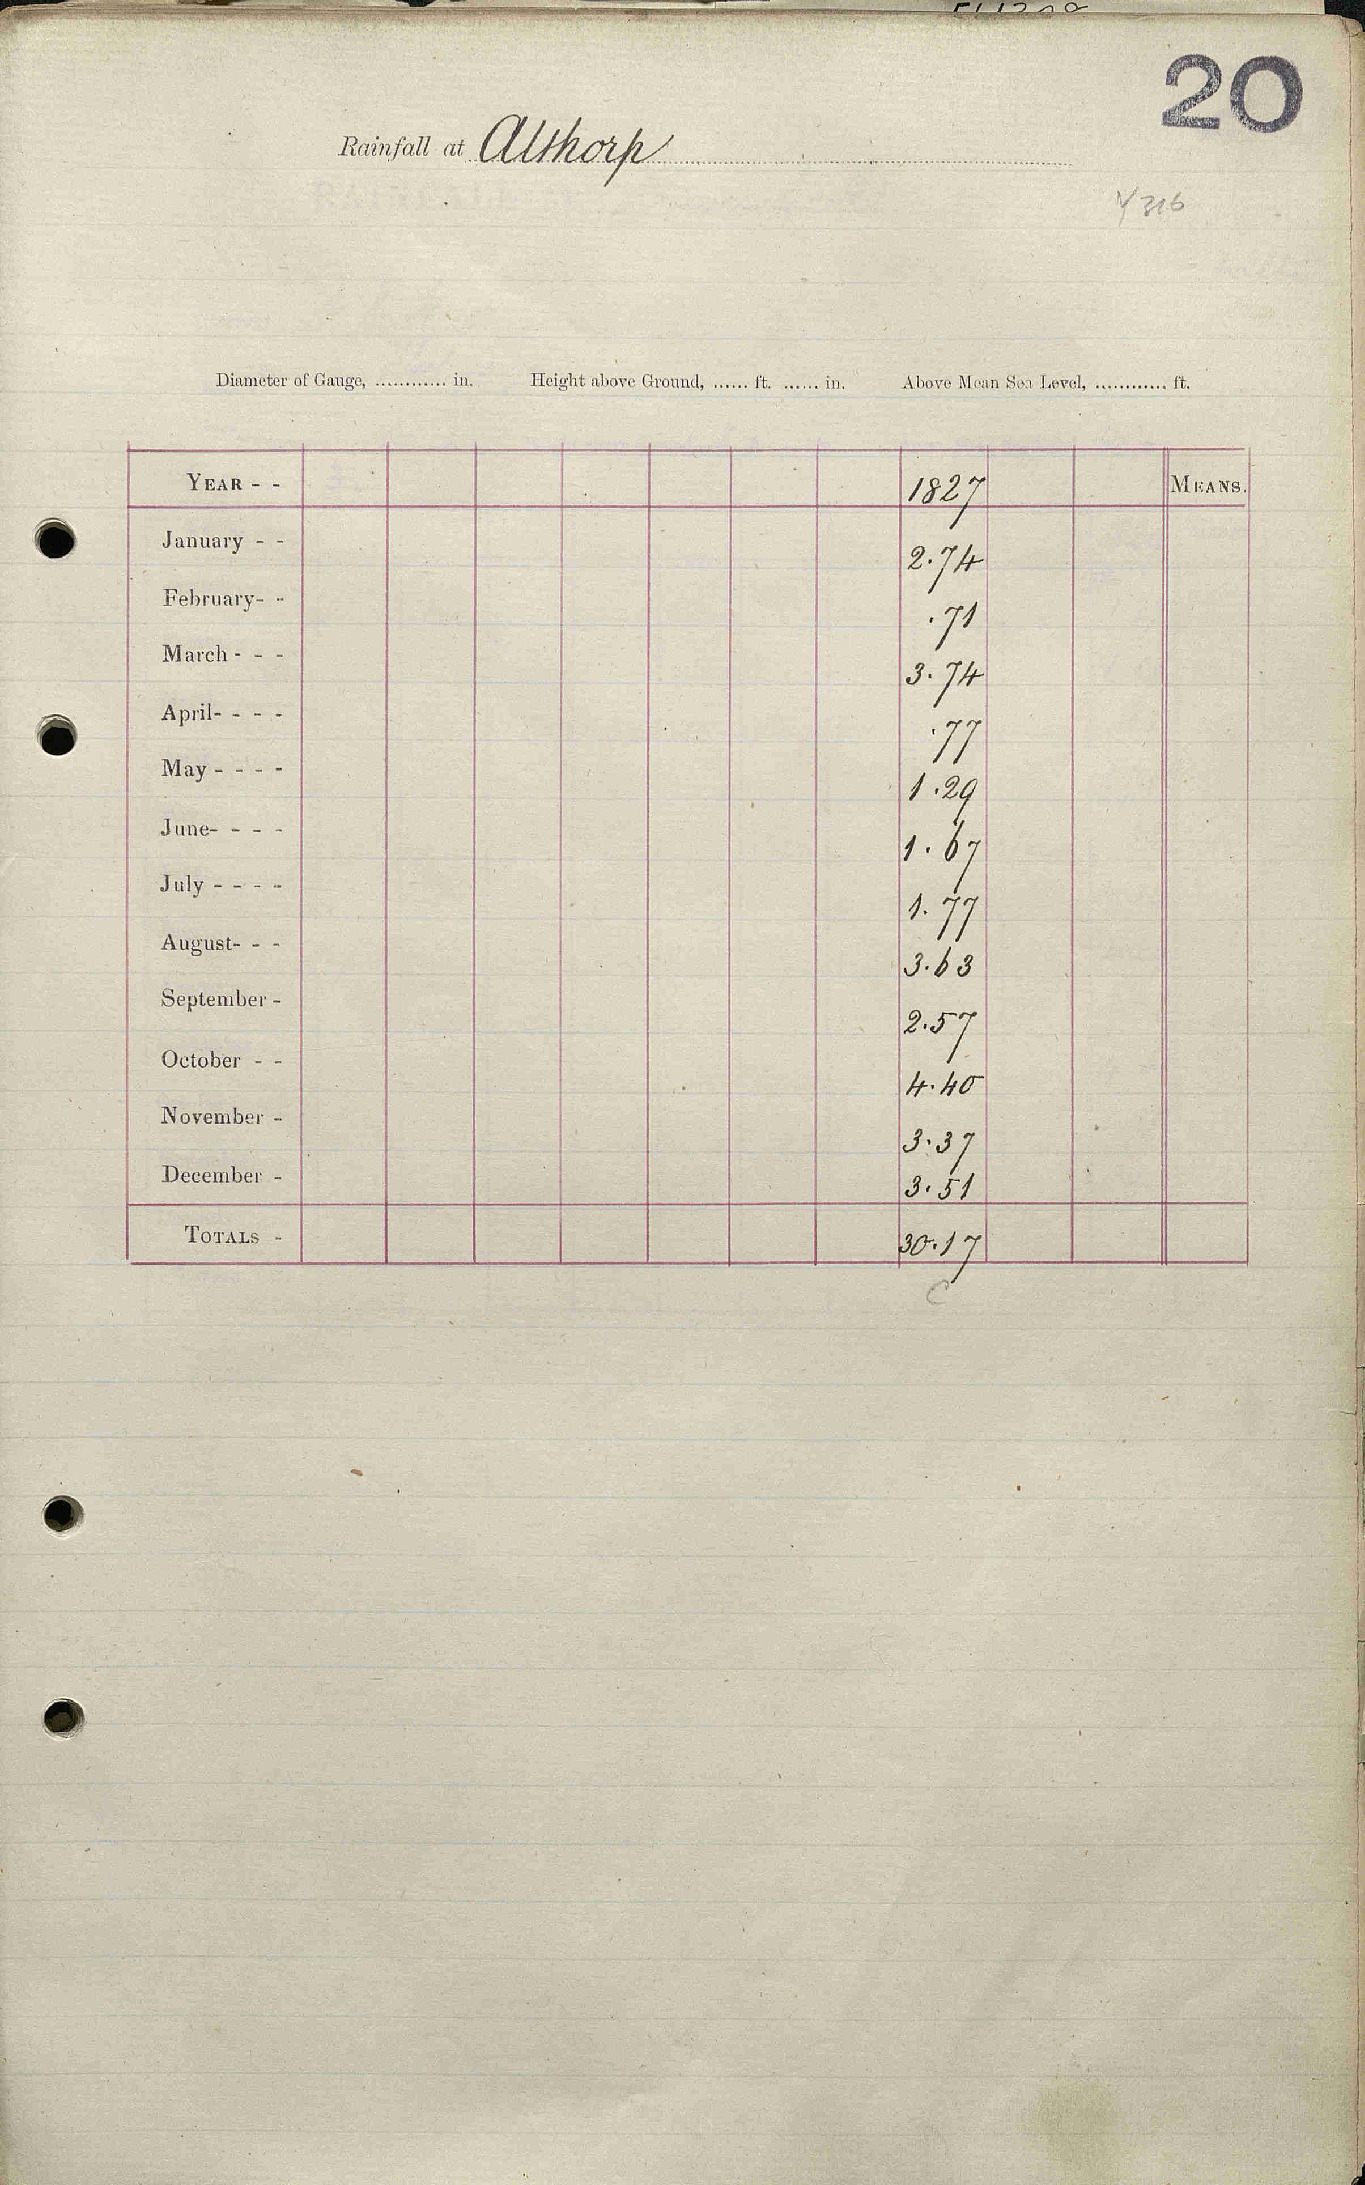 20
Rainfall at Althorp
Y 316
Diameter of Gauge, ............ in. Height above Ground, ...... ft. ...... in. Above Mean Sea Level, ............ ft.
YEAR - - 1827 MEANS.
January - - 2.74
February- - .71
March - - - 3.74
April- - - - .77
May - - - - 1.29
June- - - - 1.67
July - - - - 1.77
August- - - 3.63
September - 2.57
October - - 4.40
November - 3.37
December - 3.51
TOTALS - 30.17
C